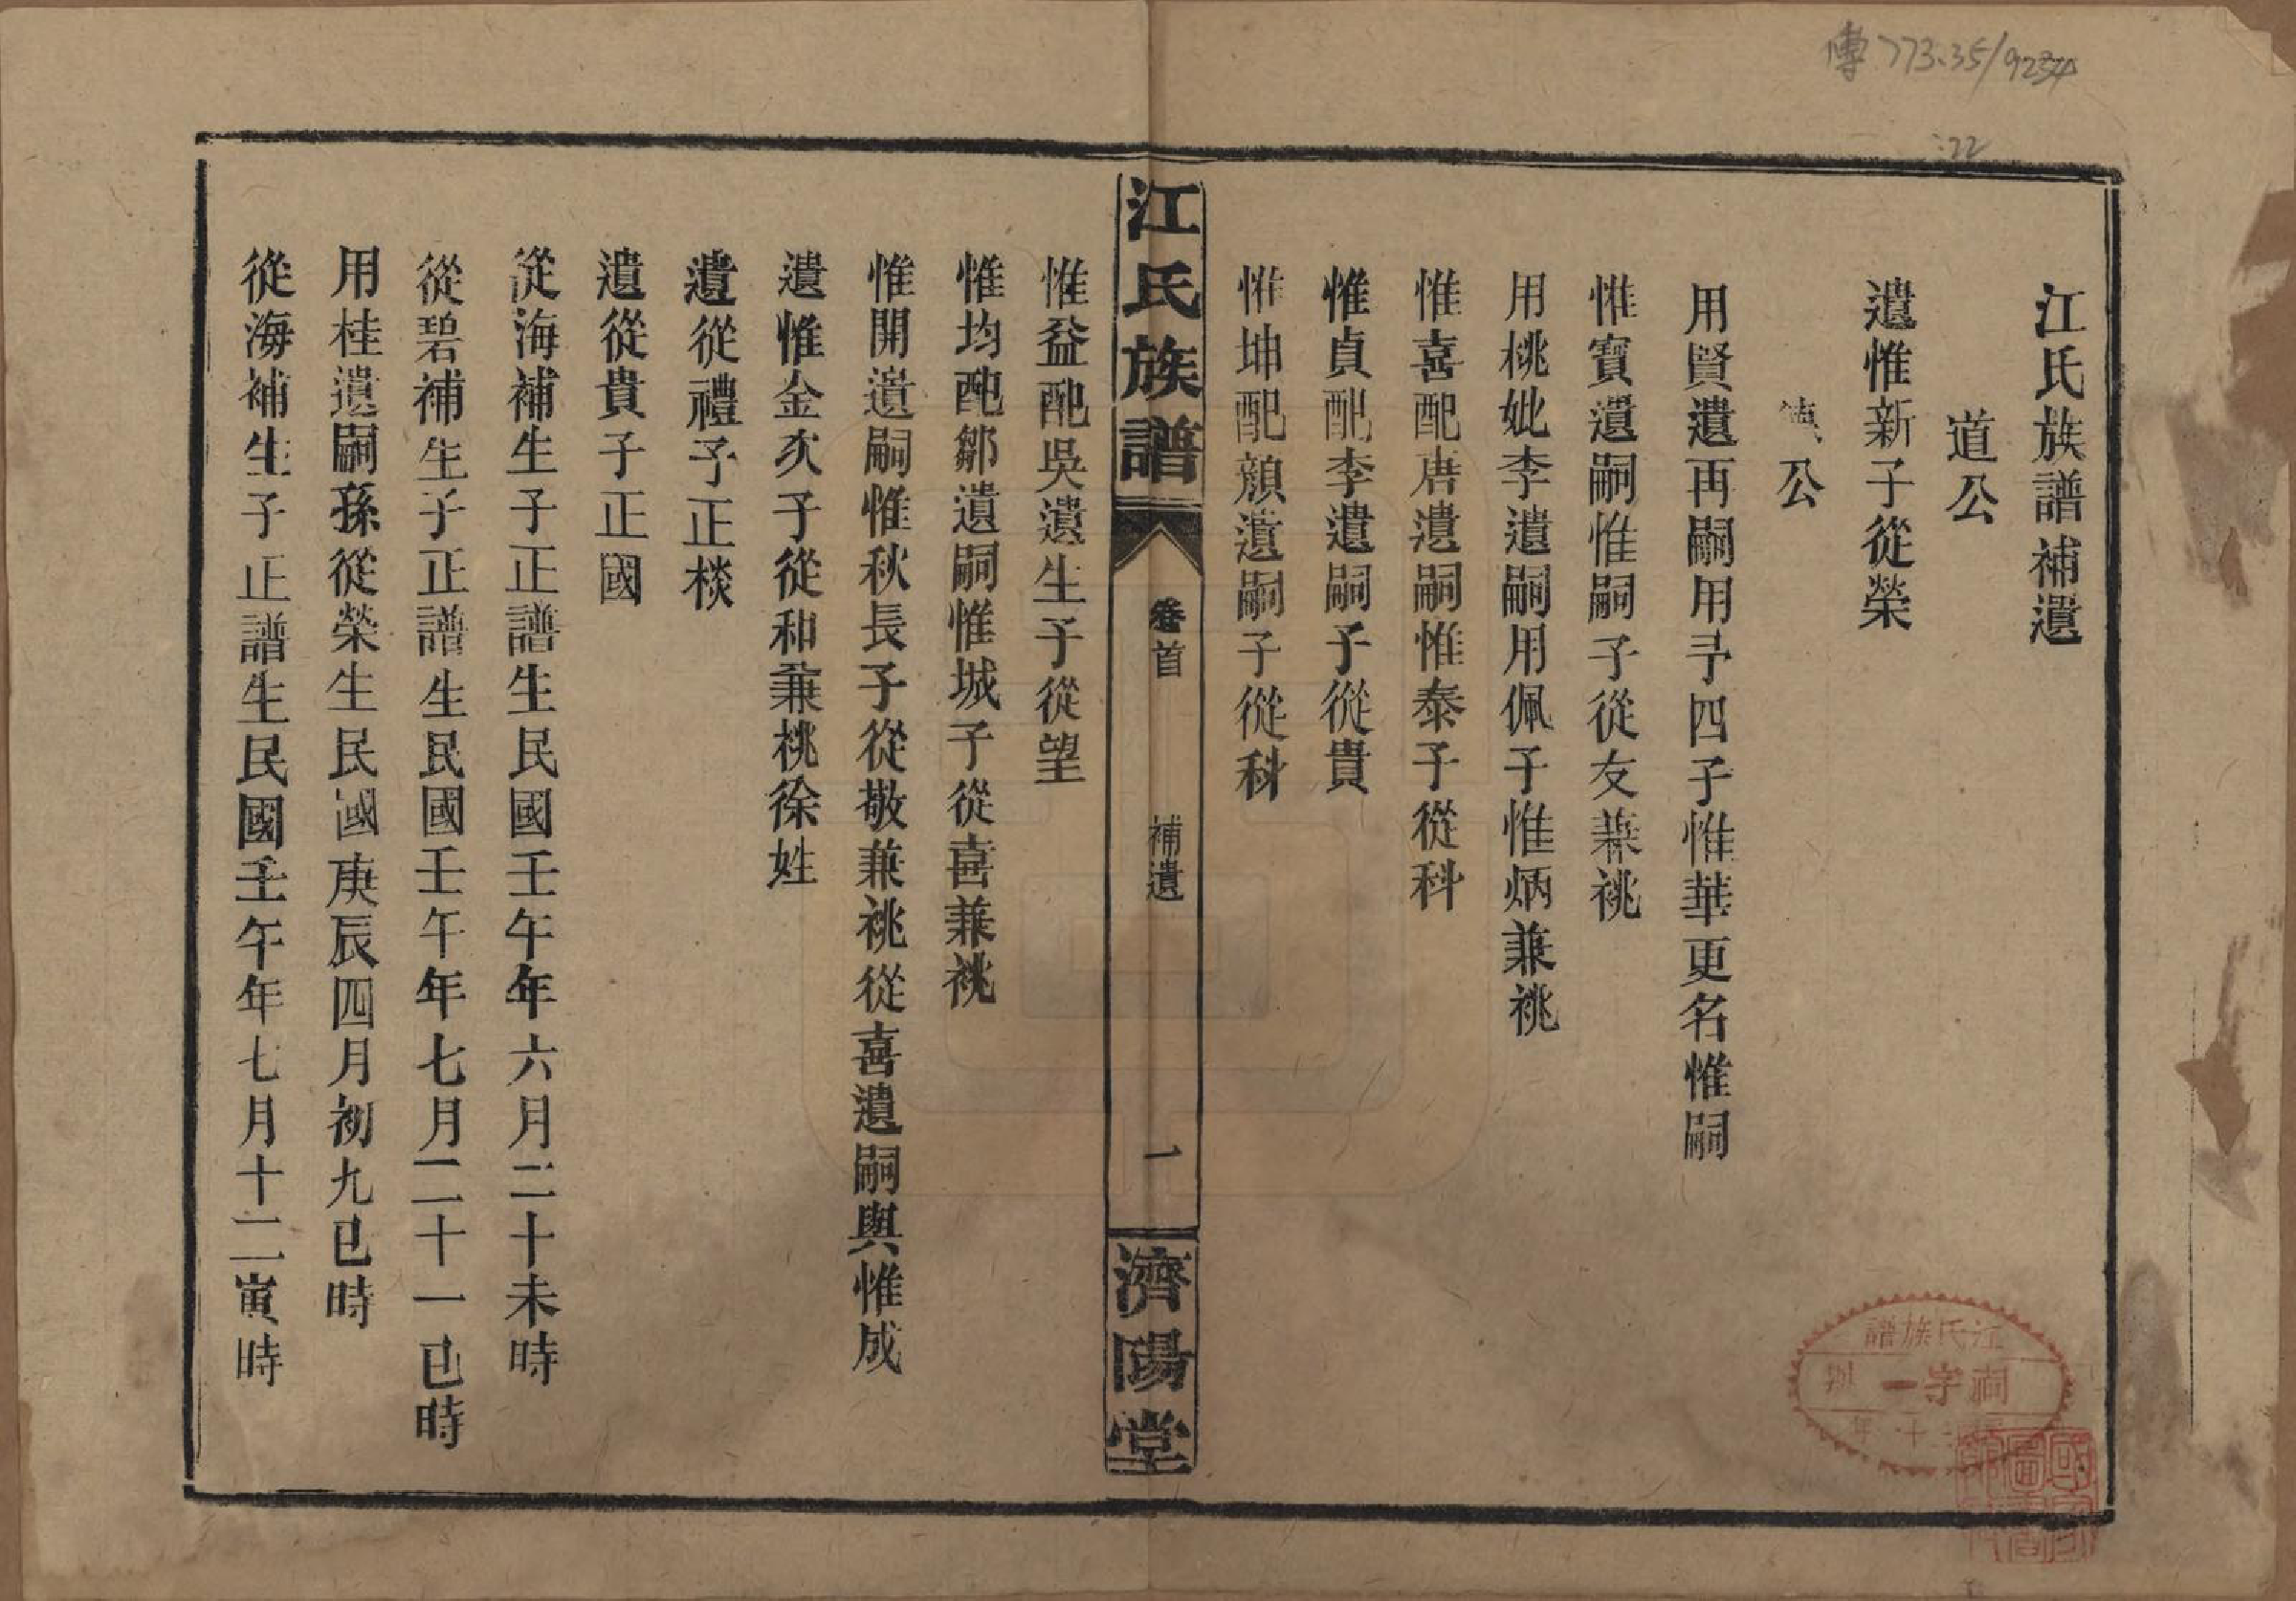 傳773.35/9234
:22
江氏族譜補遺
道公
遺惟新子從榮
公
用賢遺再嗣用予四子惟華更名惟嗣
惟寶遺嗣惟嗣子從友兼祧
用桃妣李遺嗣用佩子惟炳兼祧
惟喜配唐遺嗣惟泰子從科
惟貞配李遺嗣子從貴
惟坤配顏遺嗣子從科
江氏族譜
卷首
補遺
一
濟陽堂
惟益配吳遺生子從望
惟均配鄒遺嗣惟城子從喜兼祧
惟開遺嗣惟秋長子從敬兼祧從喜遺嗣與惟成
遺惟金次子從和兼桃徐姓
遺從禮子正棪
遺從貴子正國
從海補生子正譜生民國壬午年六月二十未時
從碧補生子正譜生民國壬午年七月二十一巳時
用桂遺嗣孫從榮生民國庚辰四月初九巳時
從海補生子正譜生民國壬午年七月十二寅時
江氏族譜
字一號